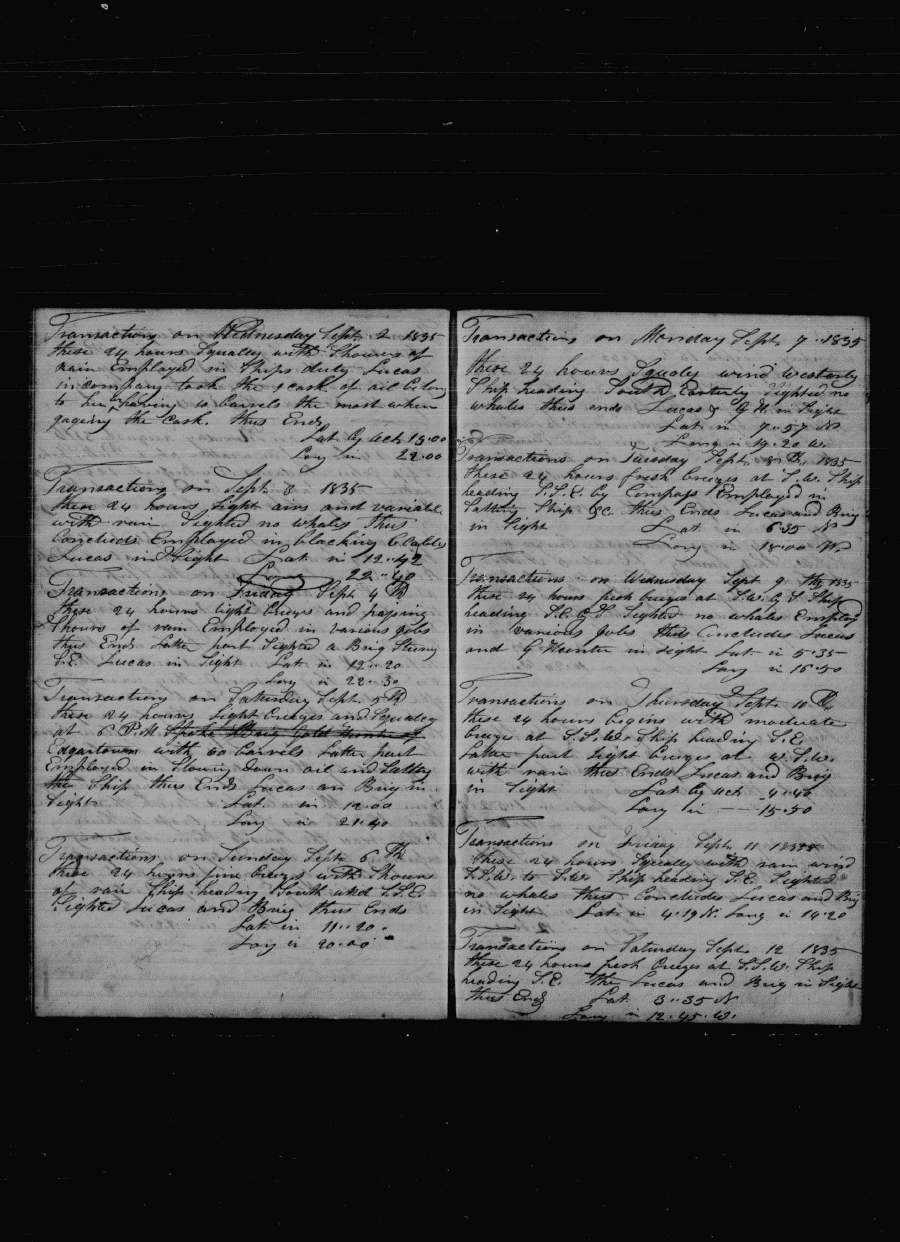 Transactions on Wednesday Sept. 2 1835
these 24 hours Squaley with Showers of
rain Employed in Ships duty Lucas
in company took the cask of oil
to her having 10 barrels the most when
gaging the cask. thus Ends
Lat by Act 13..00
Long in 22..00
Transactions on Sept. 3 1835
these 24 hours light airs and variable
with rain Sighted no whales Thus
Concludes Employed in blacking
Lucas in Sight Lat in 12..42
Long 22..40
Transactions on Friday Sept. 4 th
these 24 hours light breezes and passing
Showers of rain Employed in various jobs
thus Ends Latter part Sighted a Brig Stearing
S.E. Lucas in Sight Lat in 12..20
Long in 22..30
Transactions on Saturday Sept. 5 th
these 24 hours light breezes and Squaley
at 6 P.M. Spoke Brig
Edgartown with 60 barrels Latter part
Employed in Stowing down oil and Salting
the Ship thus Ends Lucas an Brig in
Sight Lat in 12.00
Long in 21..40
Transactions on Sunday Sept. 6 th
these 24 hours fine breezes with Showers
of rain Ship heading South and S.S.E.
Sighted Lucas and Brig thus Ends
Lat in 11..20
Long in 20..00
Transactions on Monday Sept. 7..1835
these 24 hours Squaley wind Westerly
Ship heading South Easterly Sighted no
whales thus ends Lucas & G H. in Sight
Lat in 7..57 N
Long in 19..20 W.
Transactions on Tuesday Sept. 8 th, 1835
these 24 hours fresh breezes at S.W. Ship
heading S.S.E. by Compass Employed in
Salting Ship &c. thus Ends Lucas and Brig
in Sight Lat. in 6..35 N
Long in 18..00 W.
Transactions on Wednesday Sept 9 th 1835
these 24 hours fresh breezes at S.W. by S Ship
heading S.E. by S Sighted no whales Employ
in various Jobs thus Concludes Lucas
and G Hunter in Sight Lat in 5..35
Long in 16..50
Transactions on Thursday Sept. 10 th
these 24 hours begins with moderate
breezes at S.S.W. Ship heading S.E.
Latter part light breezes at W.S.W.
with rain thus Ends Lucas and Brig
in Sight Lat by Act 4..40
Long in 15..50
Transactions on Friday Sept. 11 1835
these 24 hours Squaley with rain wind
S.S.W. to S.W. Ship heading S.E. Sighted
no whales thus Concludes Lucas and Brig
in Sight Lat. in 4..19 N. Long in 14..20
Transactions on Saturday Sept. 12 1835
these 24 hours fresh breezes at S.S.W. Ship
heading S.E. the Lucas and Brig in Sight
thus Ends Lat. 3..35 N
Long in 12..45. W.